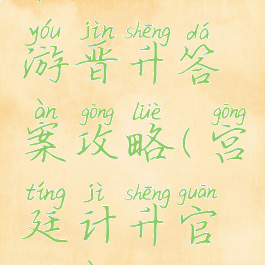 yóu jìn shēng dá
游晋升答
àn gōng lüè gōng
案攻略(宫
tíng jì shēng guān
廷计升官